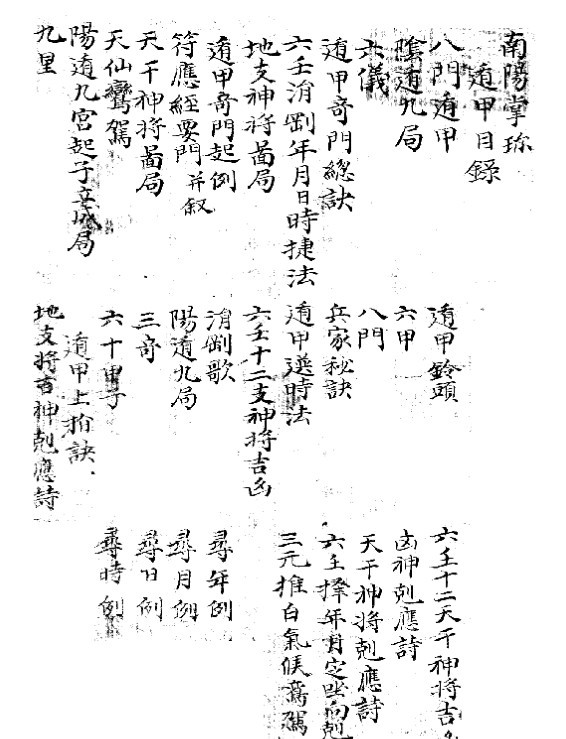 南陽掌珎
遁甲目錄
八門遁甲
陰遁九局
六儀
遁甲奇門總訣
六壬消劉年月日時捷法
地支神将啚局
遁甲奇門起例
符應經要門并叙
天干神将啚局
天仙鸞駕
陽遁九宮起子 局
九星
遁甲鈐頭
六甲
八門
兵家秘訣
遁甲選時法
六壬十二支神将吉凶
消劉歌
陽遁九局
三奇
六十甲子
遁甲上指訣
地支将吉神尅應詩
六壬十二天干神将吉
凶神尅應詩
天干神将尅應詩
六壬擇年月定坐向尅
三元推白氣候鸞駕
尋年例
尋月例
尋日例
尋時例